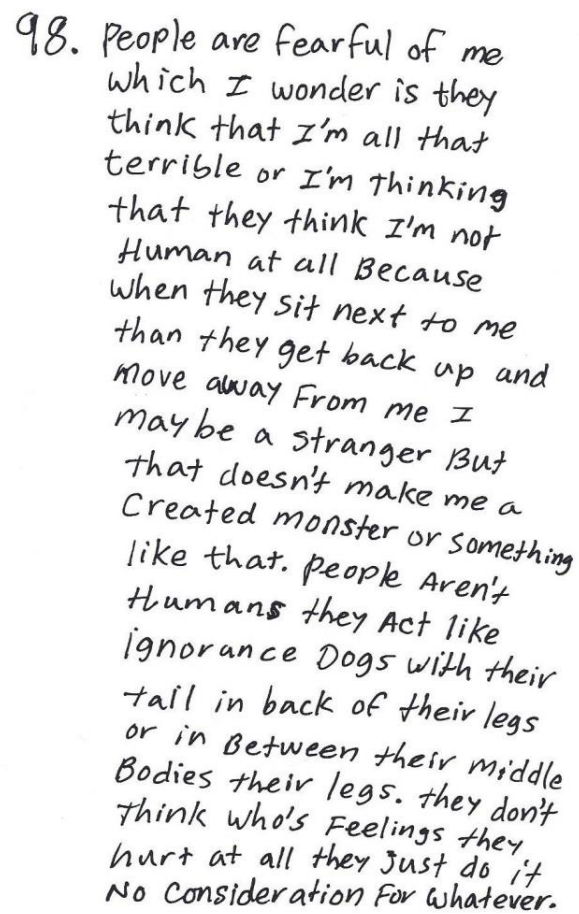 98. People are fearful of me
which I wonder is they
think that I'm all that
terrible or I'm Thinking
that they think I'm not
Human at all Because
when they sit next to me
than they get back up and
move away From me I
may be a stranger But
that doesn't make me a
Created monster or something
like that. people Aren't
Humans they Act like
ignorance Dogs with their
tail in back of their legs
or in Between their middle
Bodies their legs. they don't
Think who's Feelings they
hurt at all they just do it
No Consideration For whatever.